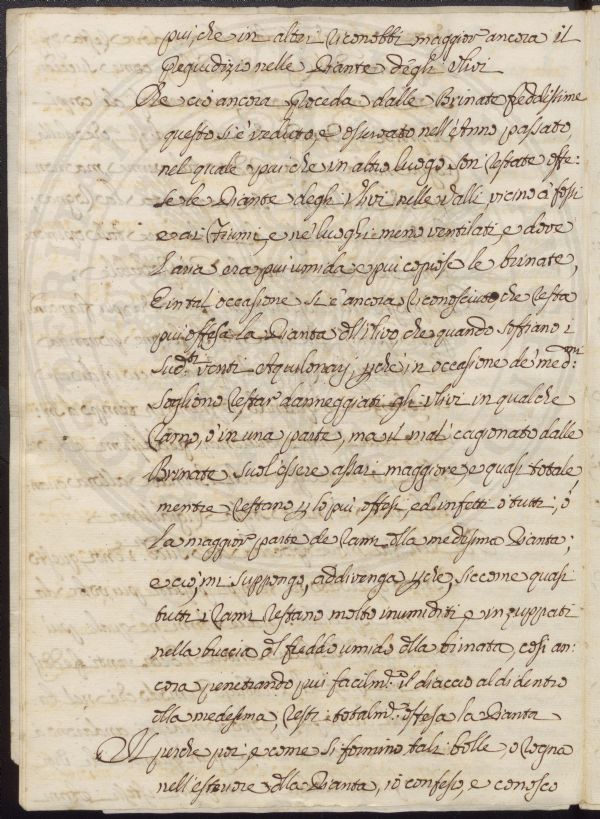 più, che in altri riconobbi maggior ancora il
pregiudizio nelle Piante degli Ulivi
Che ciò ancora proceda dalle Brinate freddissime
questo si è veduto, e osservato nell'Anno passato,
nel quale più che in altro luogo son restate offe:
se le Piante degli Ulivi nelle Valli vicino a' fossi
e ai Fiumi, e ne' luoghi meno ventilati, e dove
l'aria era più umida e più copiose le brinate,
E in tal occasione si è ancora riconosciuto, che resta
più offesa la Pianta dll'Ulivo, che quando soffiano i
sudti venti Aquilonarj, pche in occasione de' medmi
sogliono restar danneggiati gli Ulivi in qualche
ramo, o in una parte, ma il mal cagionato dalle
Brinate suol essere assai maggiore, e quasi totale,
mentre restano p lo più offesi, ed infetti o tutti, o
la maggior parte de rami dlla medesima Pianta;
e ciò, mi suppongo, addivenga pche, siccome quasi
tutti i rami restano molto inumiditi e inzuppati
nella buccia dl freddo umido dlla brinata, così an:
cora penetrando più facilmte il diaccio al di dentro
dlla medesima, resti totalmte offesa la Pianta
Il perche poi, e come si formino tali bolle, o rogna
nell'esteriore dlla Pianta, io confesso, e conosco